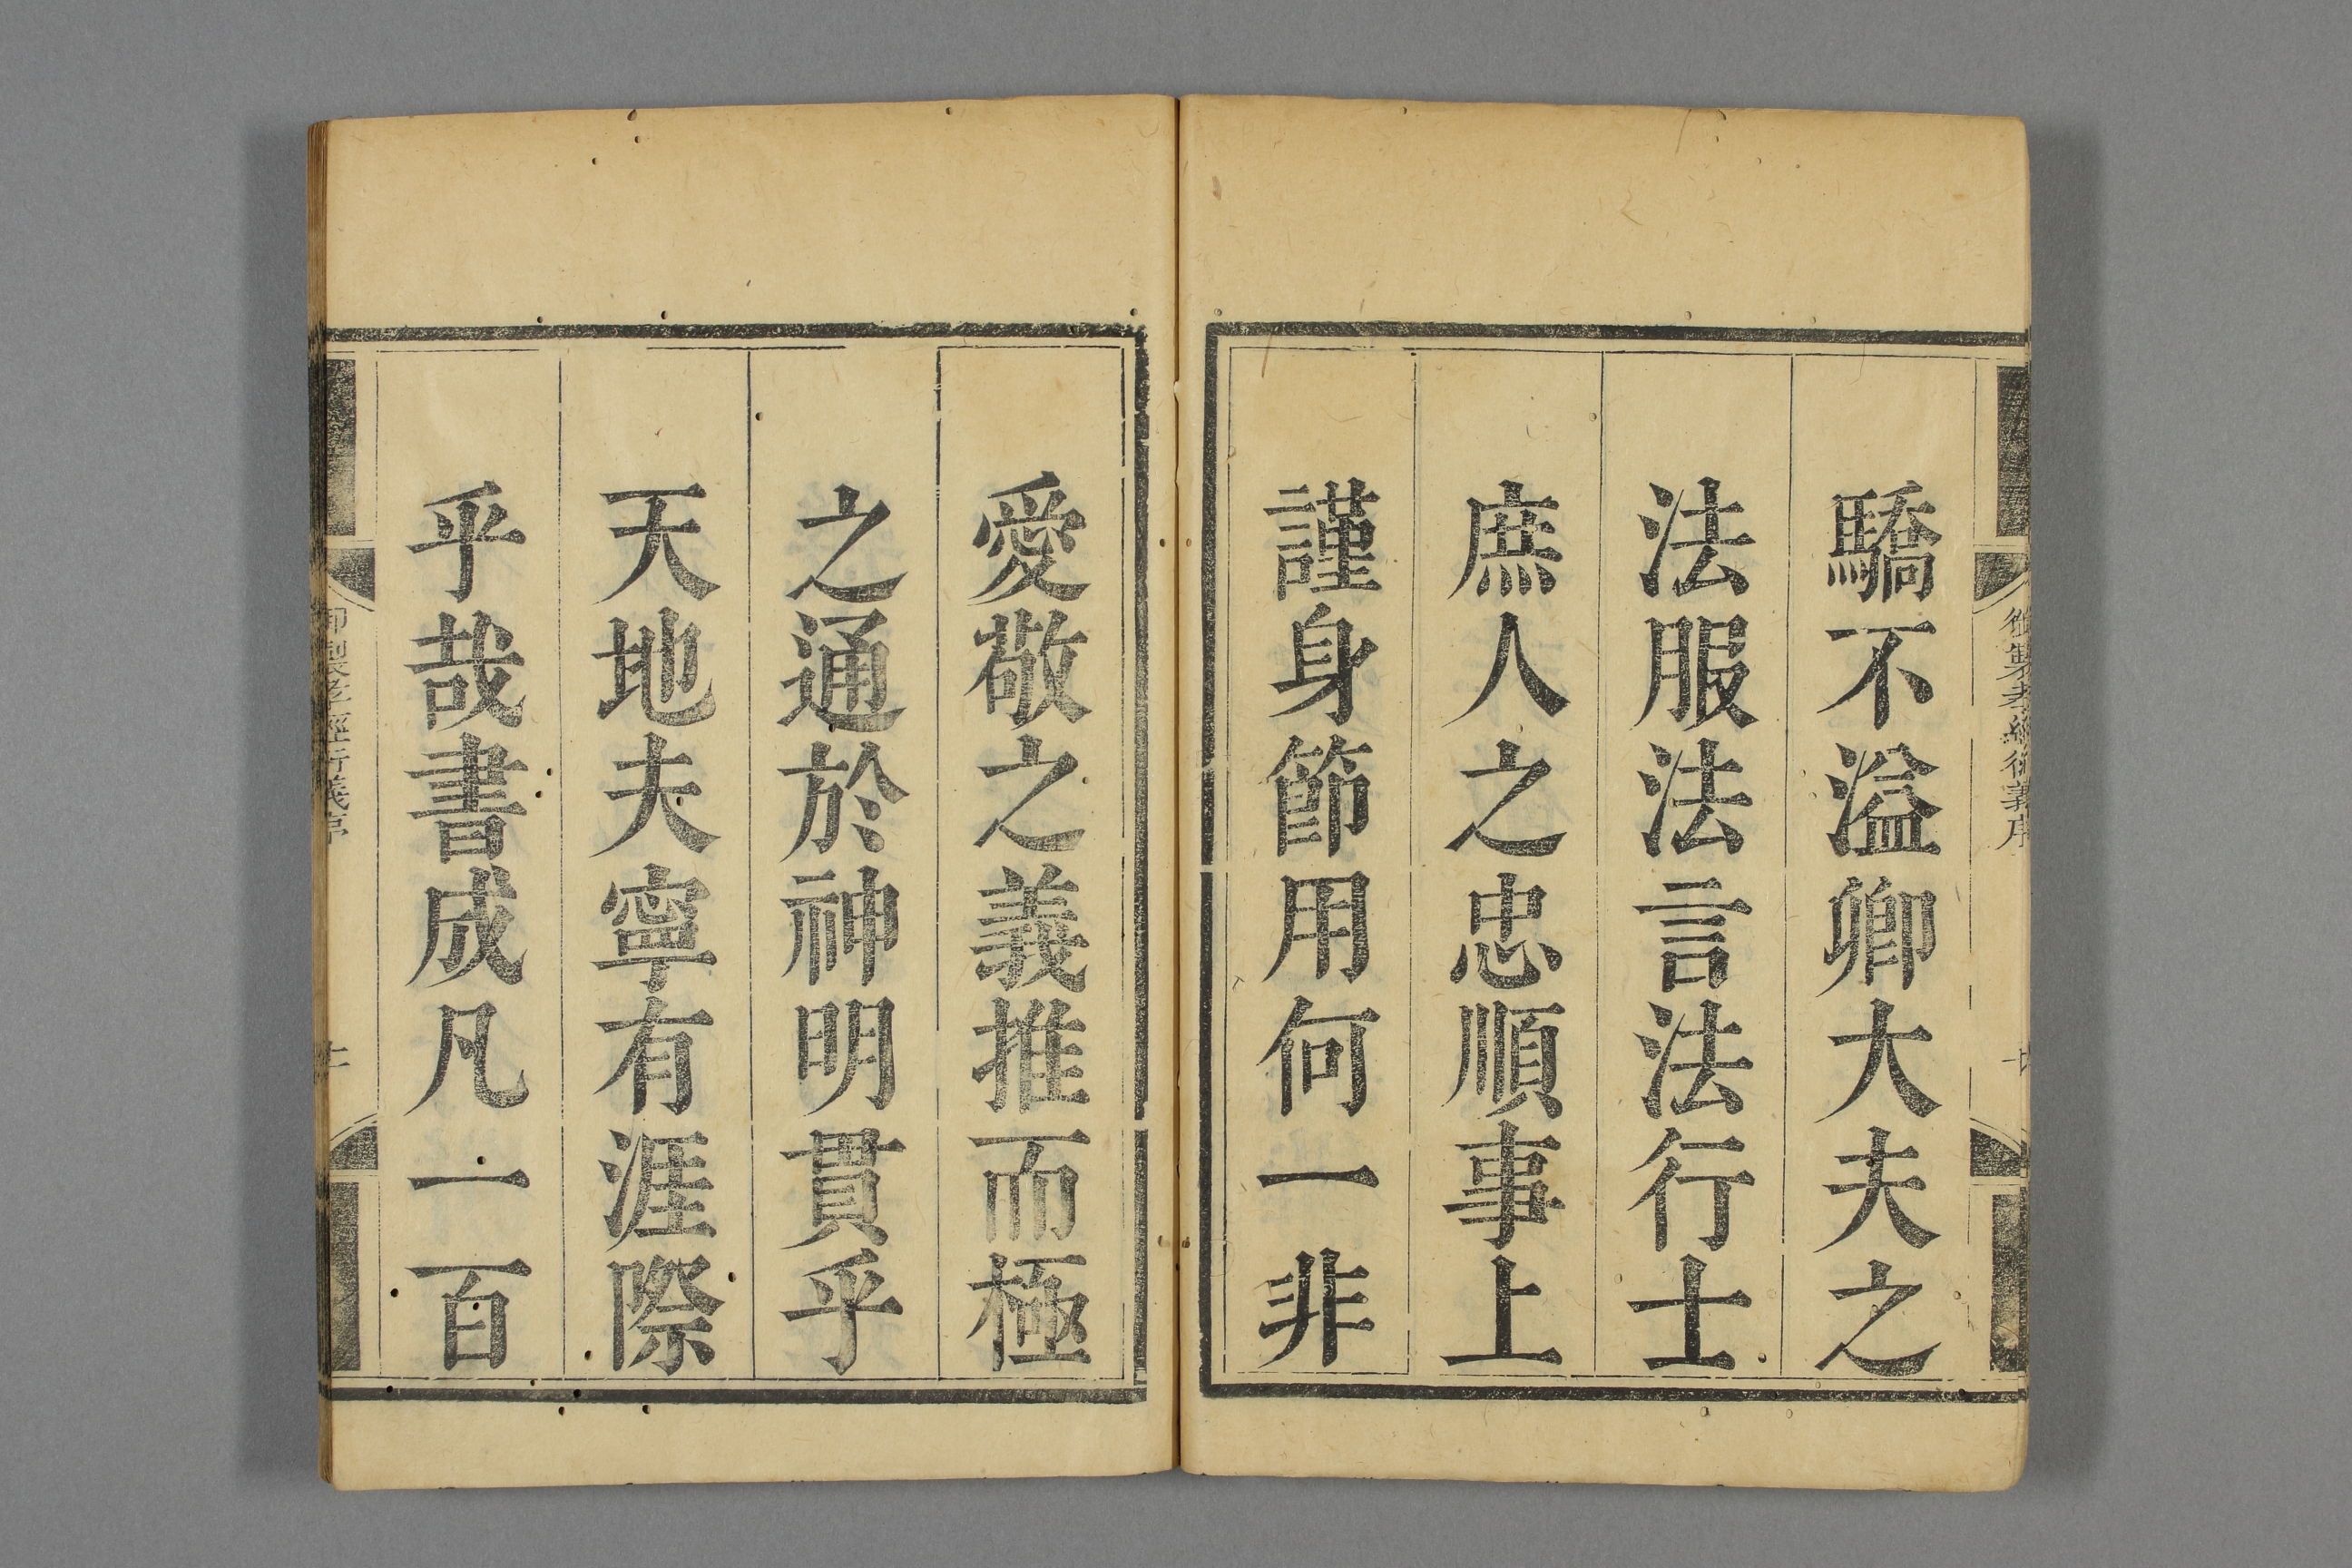 驕不溢卿大夫之
法服法言法行士
庶人之忠順事上
謹身節用何一非
愛敬之義推而極
之通於神明貫乎
天地夫寧有涯際
乎哉書成凡一百
御製孝經衍義序